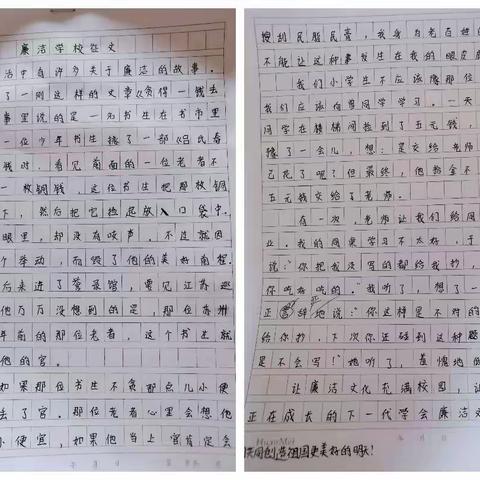 廉洁学校征文
活中有许多关于廉洁的故事。
了一则这样的文章《贪得一钱丢
事里说的是一元书生在书市里
一位少年书生掾了一部《吕氏春
钱时，看见前面的一位老者不
一枚铜钱，这位书生把那枚铜
下，然后把它捡起放入口袋中。
眼里，却没有吱声。不过就因
个举动，而毁了他的美好前程。
后来进了常录馆，要见江苏巡
他万万没想到的是，那在苏州
年前的那位老者，这个书生就
他的官。
如果那位书生不贪那点儿小便
丢了官。那位老者心里会想他
小便宜，如果他当上官肯定会
搜刮民脂民膏，我身为老百姓的
不能让这种事发生在我的眼皮底
我们小学生不应该像那位
我们应该向曾同学学习。一天
同学在楼梯间捡到了五元钱，
豫了一会儿，想：是交给老师
己花了呢？但最终，他拾金不
五元钱交给了老师。
有一次，老师让我们给同
业。我的同桌学习不太好，于
说：“你把我没写的都给我抄，
你吃好吃的。”我听了，想了一
正言辞地说：“你这样是不对的
给你抄，下次你还碰到这种题
是不会写！”她听了，羞愧地低
让廉洁文化充满校园，让
正在成长的下一代学会廉洁文
共同创造祖国更美好的明天！